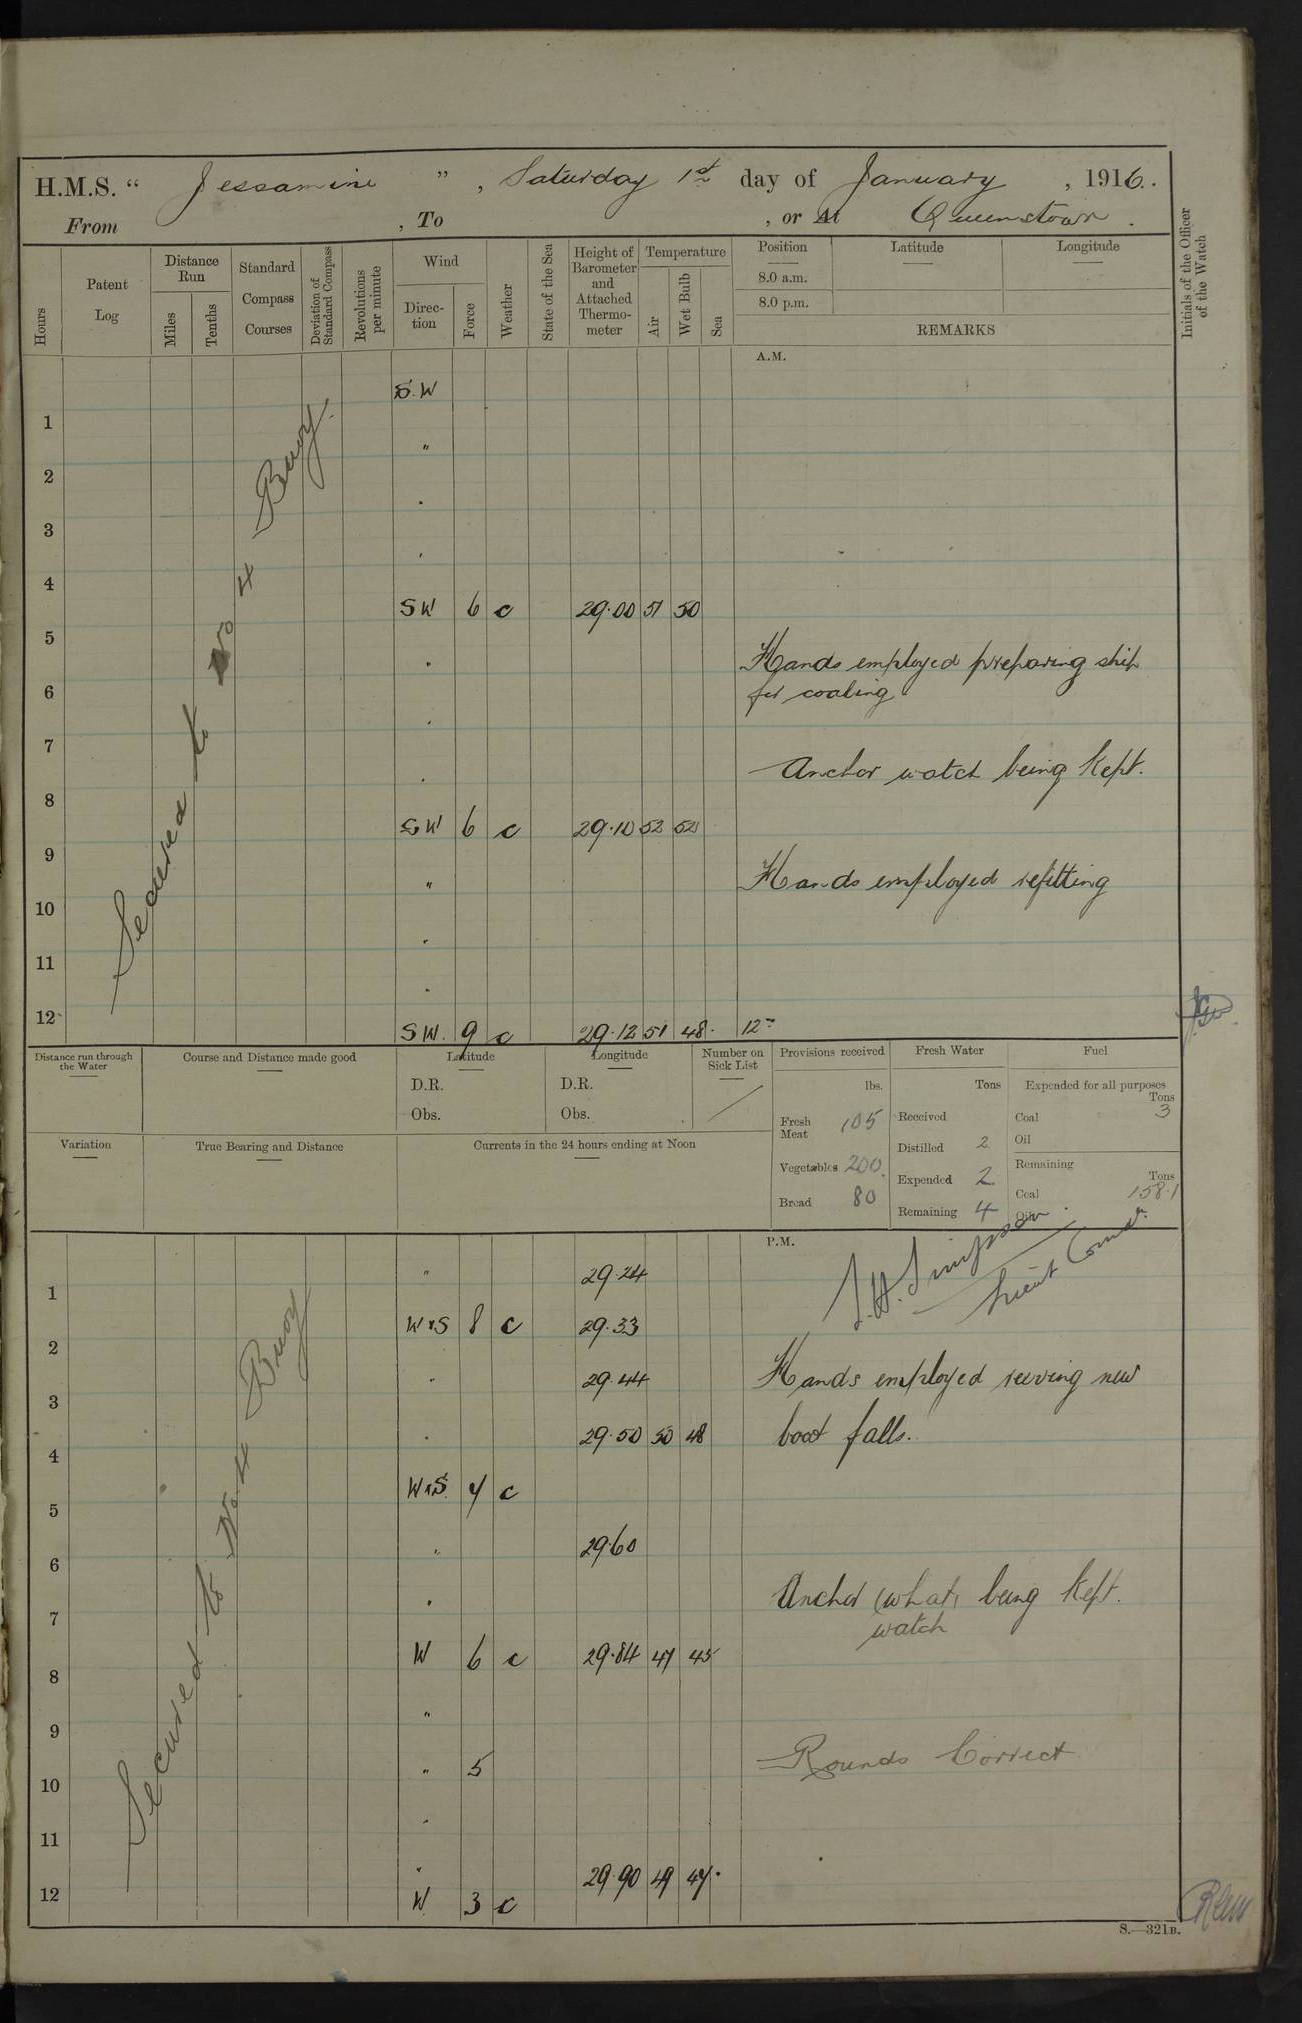 H.M.S. “ Jessamine ”, Saturday 1st day of January, 1916.
From , To , or At Queenstown.
Hours
Patent Log
Distance Run
Miles
Tenths
Standard Compass Courses
Deviation of Standard Compass
Revolutions per minute
Wind
Direc-tion
Force
Weather
State of the Sea
Height of Barometer and Attached Thermo-meter
Temperature
Air
Wet Bulb
Sea
Position Latitude Longitude
8.0 a.m.
8.0 p.m.
REMARKS
Initials of the Officer of the Watch
A.M.
Secured to No 4 Buoy.
S.W
1
"
2
"
3
"
4
SW 6 c 29.00 51 50
5
" Hands employed preparing ship
6
for coaling
"
7
" Anchor watch being kept.
8
SW 6 c 29.10 52 52
9
" Hands employed refitting
10
"
11
"
12
SW. 9 c 29.12 51 48. 12
Distance run through the Water
Course and Distance made good
Latitude
D.R.
Obs.
Longitude
D.R.
Obs.
Number on Sick List
Provisions received
lbs.
Fresh Meat 105
Vegetables 200.
Bread 80
Fresh Water
Tons
Received
Distilled 2
Expended 2
Remaining 4
Fuel
Expended for all purposes
Tons
Coal 3
Oil
Remaining
Tons
Coal 158.1
Oil
Variation
True Bearing and Distance
Currents in the 24 hours ending at Noon
P.M.
S.H. Simpson.
Lieut Comdr.
Secured to No 4 Buoy
" 29.24
1
W x S 8 c 29.33
2
" 29.44 Hands employed reeving new
3
" 29.50 50 48 boat falls.
4
W x S. 4 c
5
" 29.60
6
" Anchor (what) being kept.
7
watch
W 6 c 29.84 47 45
8
"
9
" 5 Rounds Correct
10
"
11
" 29.90 49 47.
12
W 3 c
S.—321B.